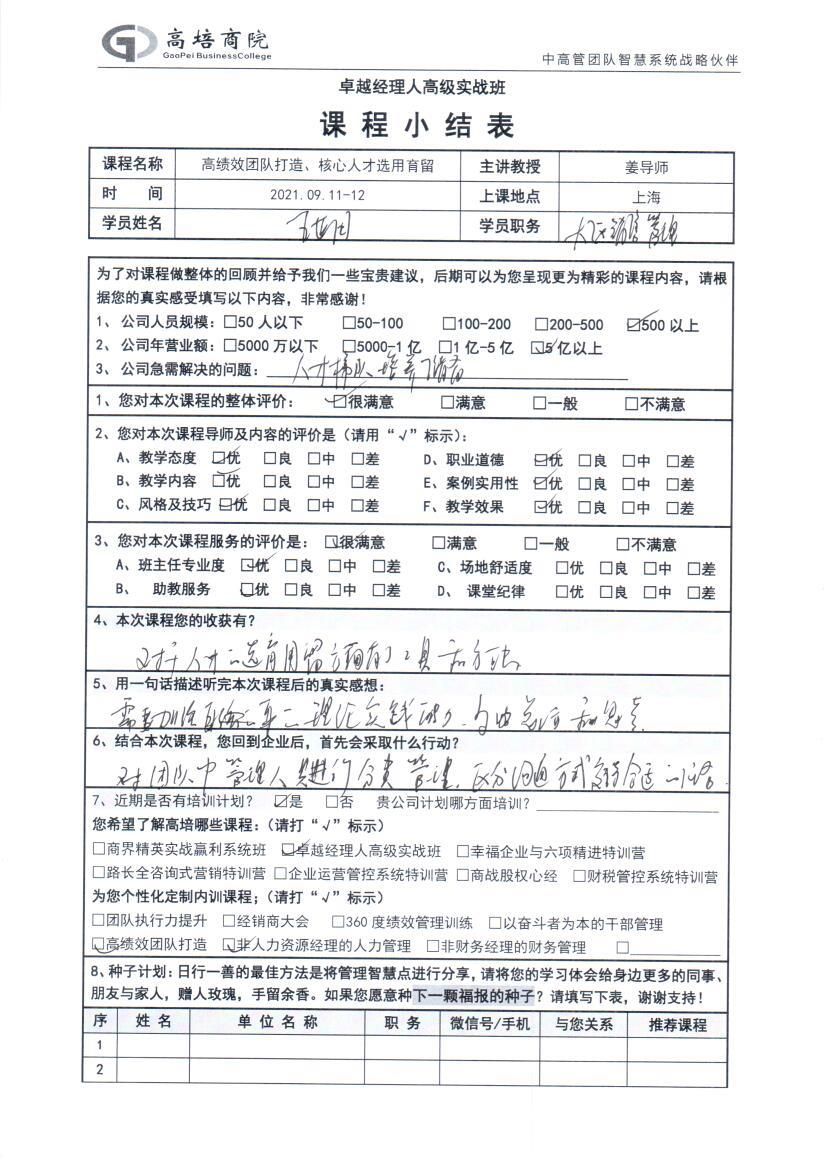 高培商院
GaoPei BusinessCollege
中高管团队智慧系统战略伙伴
卓越经理人高级实战班
课程小结表
课程名称 高绩效团队打造、核心人才选用育留 主讲教授 姜导师
时 间 2021.09.11-12 上课地点 上海
学员姓名 学员职务
为了对课程做整体的回顾并给予我们一些宝贵建议，后期可以为您呈现更为精彩的课程内容，请根
据您的真实感受填写以下内容，非常感谢！
1、公司人员规模：□50人以下 □50-100 □100-200 □200-500 ☑500以上
2、公司年营业额：□5000万以下 □5000-1亿 □1亿-5亿 ☑5亿以上
3、公司急需解决的问题：人才梯队培养储备
1、您对本次课程的整体评价： ☑很满意 □满意 □一般 □不满意
2、您对本次课程导师及内容的评价是（请用“√”标示）：
A、教学态度 ☑优 □良 □中 □差 D、职业道德 ☑优 □良 □中 □差
B、教学内容 ☑优 □良 □中 □差 E、案例实用性 ☑优 □良 □中 □差
C、风格及技巧 ☑优 □良 □中 □差 F、教学效果 ☑优 □良 □中 □差
3、您对本次课程服务的评价是： ☑很满意 □满意 □一般 □不满意
A、班主任专业度 ☑优 □良 □中 □差 C、场地舒适度 □优 □良 □中 □差
B、 助教服务 ☑优 □良 □中 □差 D、 课堂纪律 □优 □良 □中 □差
4、本次课程您的收获有？
对于人才的选育用留方面有了工具和方法
5、用一句话描述听完本次课程后的真实感想：
需要加强
6、结合本次课程，您回到企业后，首先会采取什么行动？
对团队中管理人员进行分类管理，区分沟通方式
7、近期是否有培训计划？ ☑是 □否 贵公司计划哪方面培训？
您希望了解高培哪些课程：（请打“√”标示）
□商界精英实战赢利系统班 ☑卓越经理人高级实战班 □幸福企业与六项精进特训营
□路长全咨询式营销特训营 □企业运营管控系统特训营 □商战股权心经 □财税管控系统特训营
为您个性化定制内训课程；（请打“√”标示）
□团队执行力提升 □经销商大会 □360度绩效管理训练 □以奋斗者为本的干部管理
☑高绩效团队打造 ☑非人力资源经理的人力管理 □非财务经理的财务管理 □
8、种子计划：日行一善的最佳方法是将管理智慧点进行分享，请将您的学习体会给身边更多的同事、
朋友与家人，赠人玫瑰，手留余香。如果您愿意种下一颗福报的种子？请填写下表，谢谢支持！
序 姓名 单位名称 职务 微信号/手机 与您关系 推荐课程
1
2